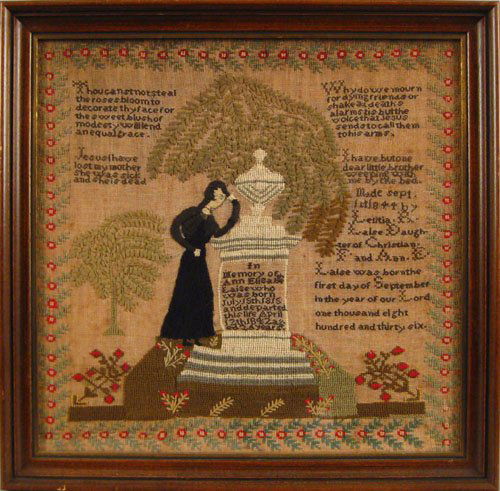 Thou canst not steal
the roses bloom to
decorate thy face for
the sweet blush of
modesty will lend
an equal grace.
Jesus I have
lost my mother
she was sick
and she is dead
Why do we mourn
for dying friends or
shake at deaths
alarms tis but the
voice that Jesus
sends to call them
to his arms.
I have but one
dear little brother
me by the bed.
Made Sept.
1 1844 by
Letitia
Laise Daugh
ter of Christian
F and Ann E.
Laise was born the
first day of September
in the year of our Lord
one thousand eight
hundred and thirty six.
In
Memory of
Ann Elisabe
Laise who
was born
July 15th 1815
and departed
this life April
12th 1842
years